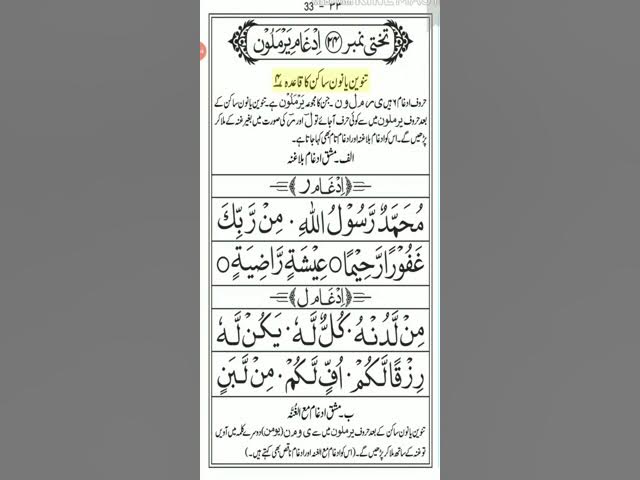 33 - ۳۳
KINEMAST
تختی نمبر ۲۴ اِدْغَامِ یَرْمَلُوْن
تنوین یا نون ساکن کا قاعدہ ۴
حروف ادغام ۶ ہیں ی ر م ل و ن ۔ جن کا مجموعہ یَرْمَلُوْن ہے۔ تنوین یا نون ساکن کے
بعد حروف یرملون میں سے کوئی حرف آجائے تو ل اور ر کی صورت میں بغیر غنہ کے ملا کر
پڑھیں گے۔ اس کو ادغام بلاغنہ اور ادغام تام بھی کہا جاتا ہے۔
الف۔ مشق ادغام بلاغنہ
اِدْغَام ر
مُحَمَّدٌ رَّسُوْلُ اللّٰهِ ۰ مِنْ رَّبِّكَ
غَفُوْرًا رَّحِيْمًا ○ عِيْشَةٍ رَّاضِيَةٍ ○
اِدْغَام ل
مِنْ لَّدُنْهُ ۰ كُلٌّ لَّهٗ ۰ يَكُنْ لَّهٗ
رِزْقًا لَّكُمْ ۰ اُفٍّ لَّكُمْ ۰ مِنْ لَّبَنٍ
ب۔ مشق ادغام مع الغُنَّه
تنوین یا نون ساکن کے بعد حروف یرملون میں سے ی و م ن (یومن) دوسرے کلمہ میں آویں
تو غنہ کے ساتھ ملا کر پڑھیں گے۔ (اس کو ادغام مع الغنہ اور ادغام ناقص بھی کہتے ہیں۔)